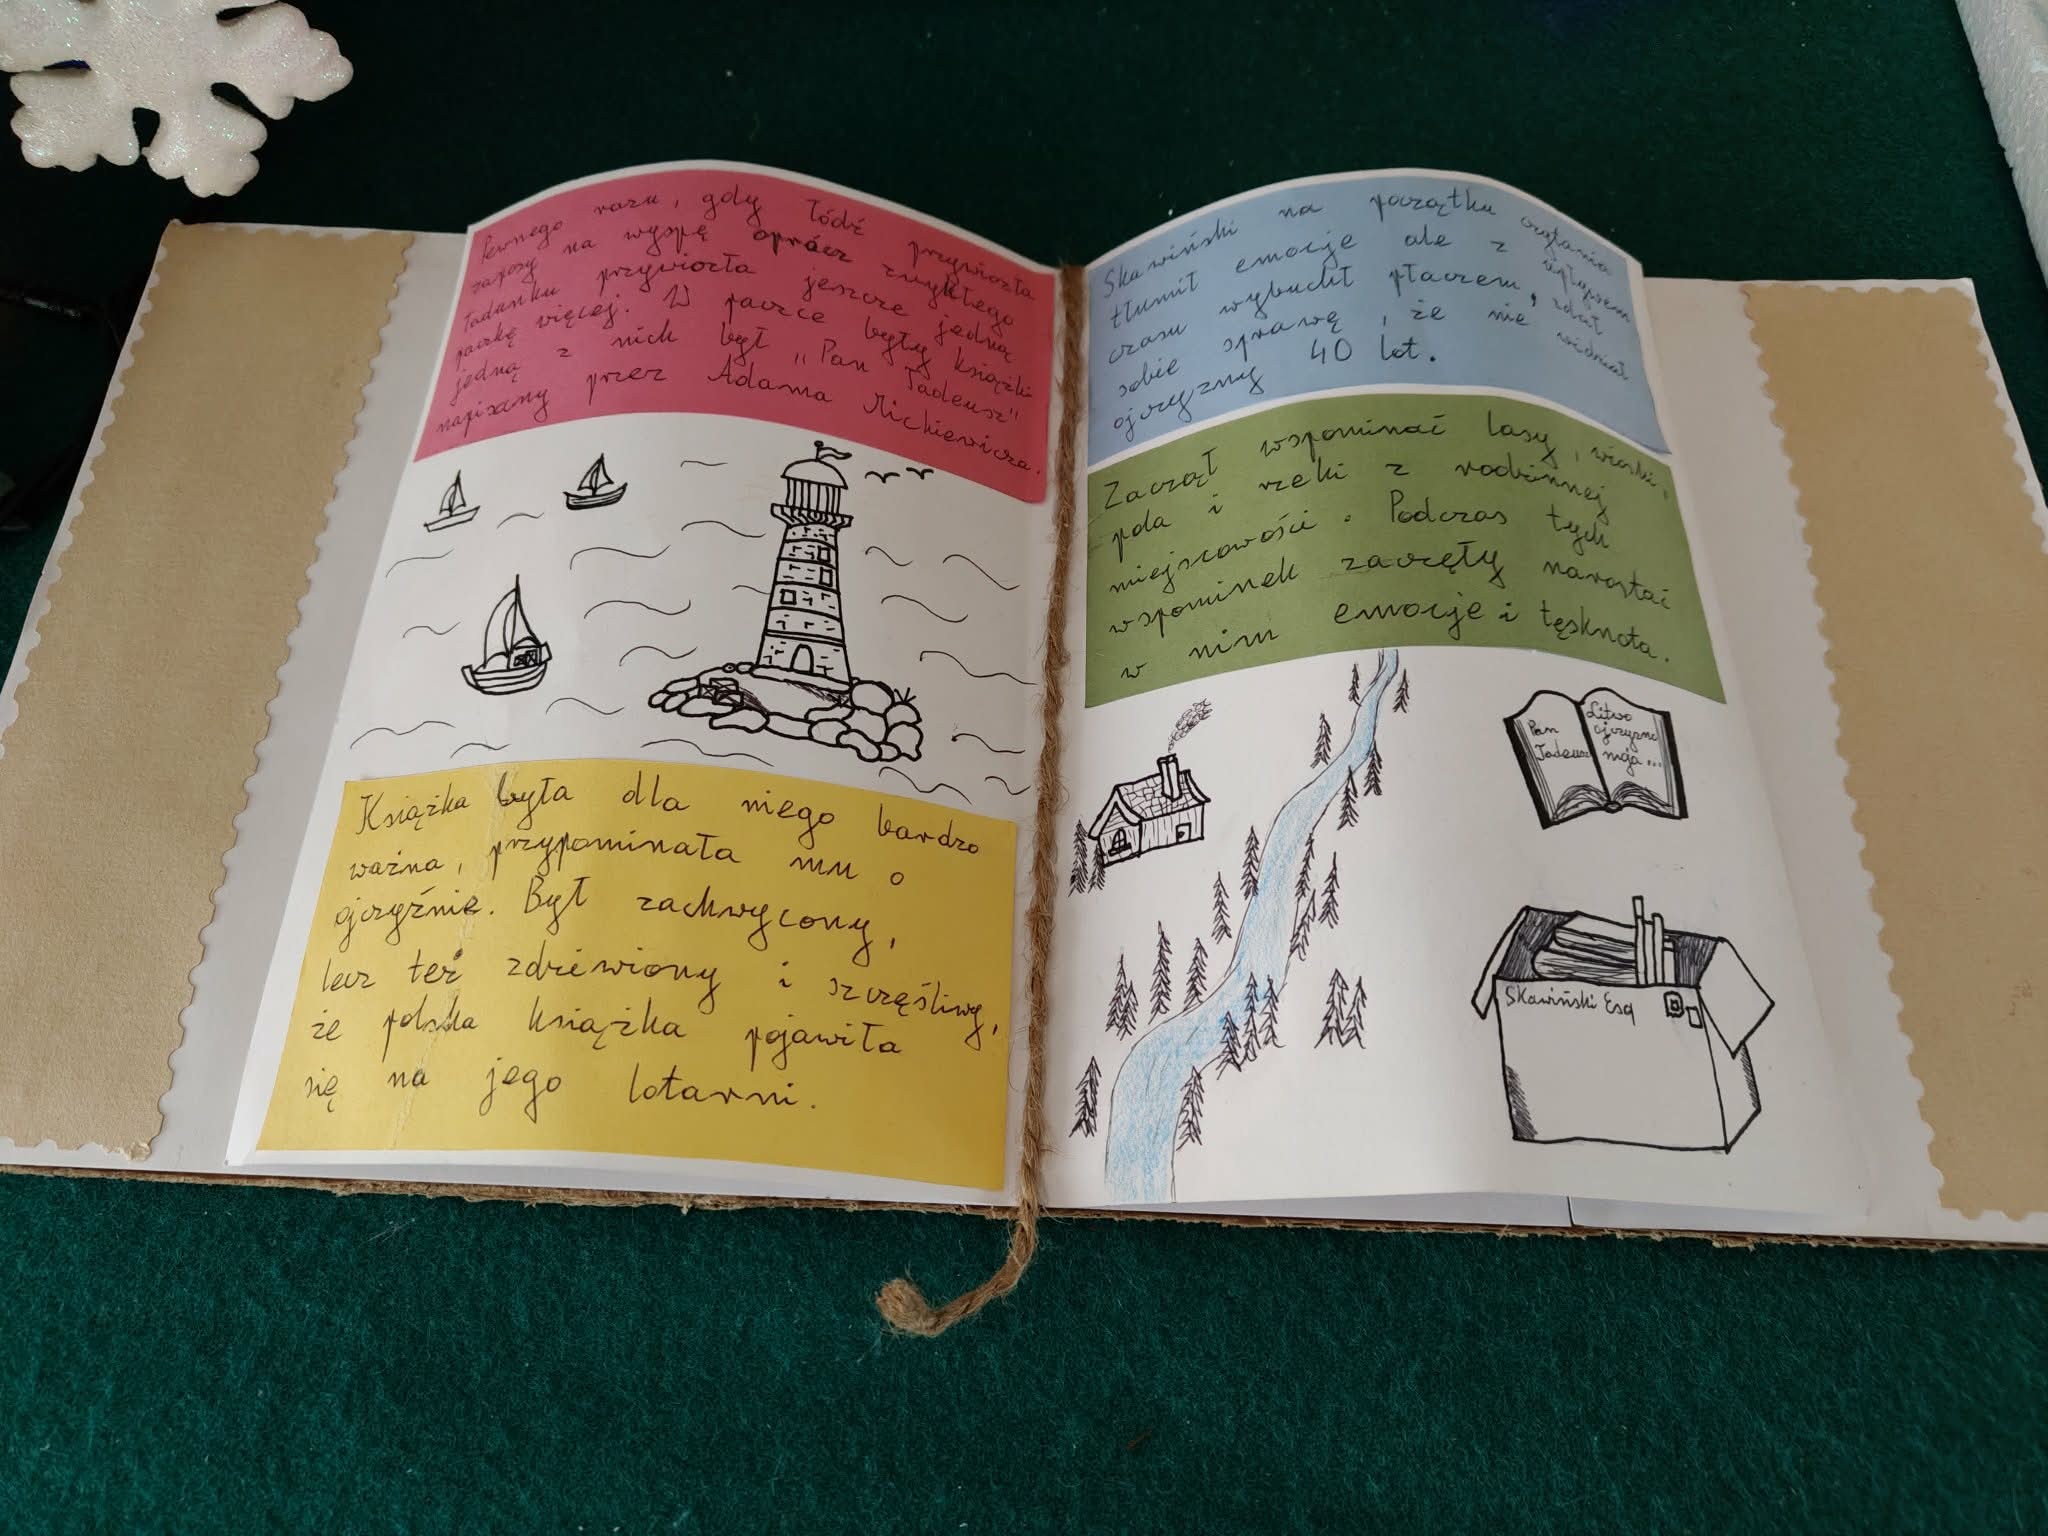 Pewnego razu, gdy łódź przywiozła
zapasy na wyspę oprócz zwykłego
ładunku przywiozła jeszcze jedną
paczkę więcej. W paczce były książki
jedną z nich był „Pan Tadeusz"
napisany przez Adama Mickiewicza.
Książka była dla niego bardzo
ważna, przypominała mu o
ojczyźnie. Był zachwycony,
lecz też zdziwiony i szczęśliwy,
że polska książka pojawiła
się na jego latarni.
Skawiński na początku czytania
tłumił emocje ale z upływem
czasu wybuchł płaczem, zdał
sobie sprawę, że nie widział
ojczyzny 40 lat.
Zaczął wspominać lasy, wioski,
pola i rzeki z rodzinnej
miejscowości. Podczas tych
wspominek zaczęły narastać
w nim emocje i tęsknota.
Pan
Tadeusz
Litwo
ojczyzno
moja...
Skawiński Esq